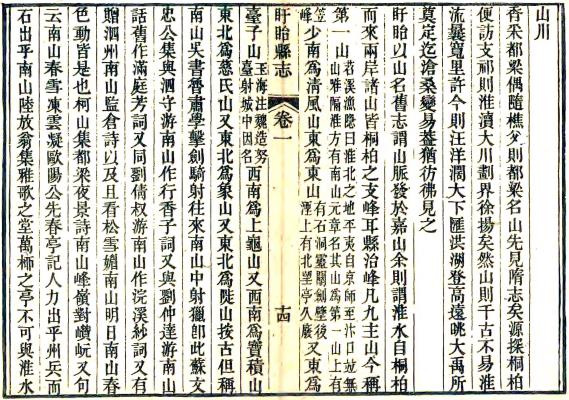 山川
香采都梁偶隨樵父則都梁名山先見隋志矣源探桐柏
便訪支祁則淮瀆大川劃界徐揚矣然山則千古不易淮
流曩寬里許今則汪洋濶大下匯洪湖登高遠眺大禹所
奠定迄滄桑變易葢猶彷彿見之
盱眙以山名舊志謂山脈發於嘉山余則謂淮水自桐柏
而來兩岸諸山皆桐柏之支峰耳縣治峰凡九主山今稱
第一山苕溪漁隱曰淮北之地平夷自京師至汴口竝無山惟隔淮方有南山元章名其山為第一山上有
笠峰少南為清風山東為東山有石洞靈關劍壁後湮上有北望亭久廢又東為
盱眙縣志 卷一 十四
臺子山玉海注魏造弩臺射城中因名西南為上龜山又西南為寶積山
東北為慈氏山又東北為象山又東北為陡山按古但稱
南山吳書魯肅學擊劍騎射往來南山中射獵卽此蘇文
忠公集與泗守游南山作行香子詞又與劉仲達游南山
話舊作滿庭芳詞又同劉倩叔游南山作浣溪紗詞又有
贈泗州南山監倉詩以及且看松雪媚南山明日南山春
色動皆是也柯山集都梁夜景詩南山峰嶺對巑岏又句
云南山春雪凍雲凝歐陽公先春亭記人力出乎州兵而
石出乎南山陸放翁集雅歌之堂萬柳之亭不可與淮水